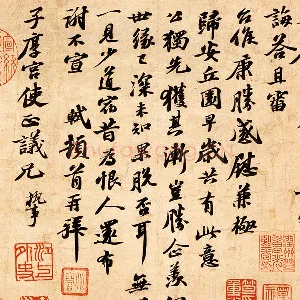 誨答且審
台候康勝感慰兼極
歸安丘園早歲共有此意
公獨先獲其漸豈勝企羨
世緣已深未知果脫否耳 無
一見少道宿昔為恨人還布
謝不宣 軾頓首再拜
子厚宮使正議兄 執事